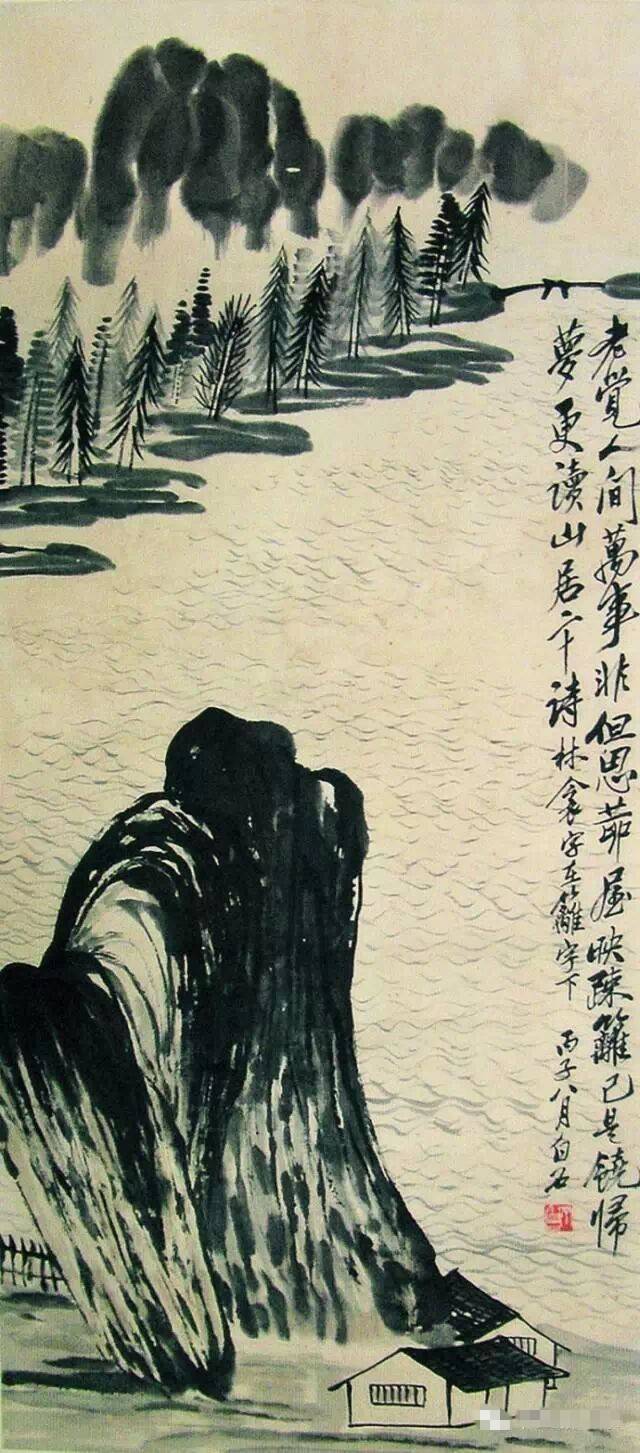 老覺人間萬事非但思茆屋映疎籬已是饒歸
夢更讀山居二十詩秋衾字在籬字下
丙子八月白石